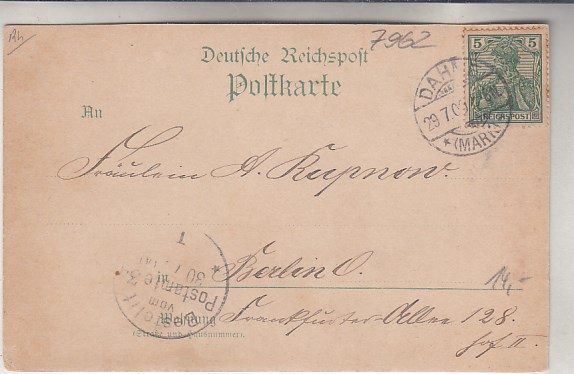 7962
Deutsche Reichspost
Postkarte
5 5
REICHSPOST
DAHME
29 7.0
* (MARK)
An
Fräulein A. Kupnow.
in Berlin O.
14,-
Wohnung Frankfurter Allee 128.
(Straße und Hausnummer)
Hof II.
Bestellt
vom
Postamte 3
30